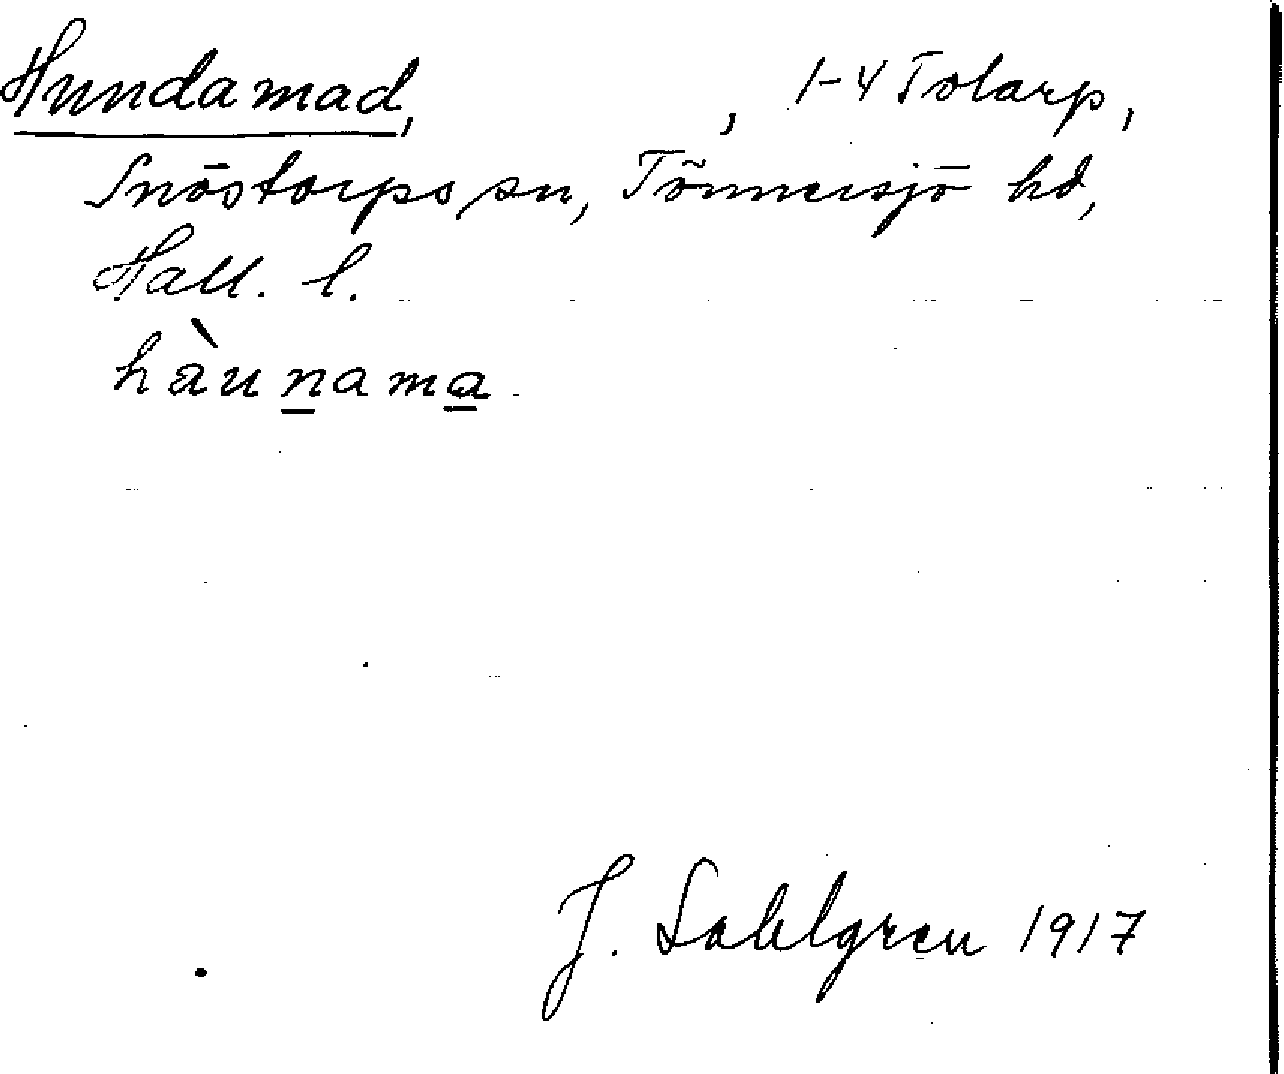 Hundamad, , 1-4 Tolarp,
Snöstorps sn, Tönnersjö hd,
Hall. l.
hàunama
J. Sahlgren 1917